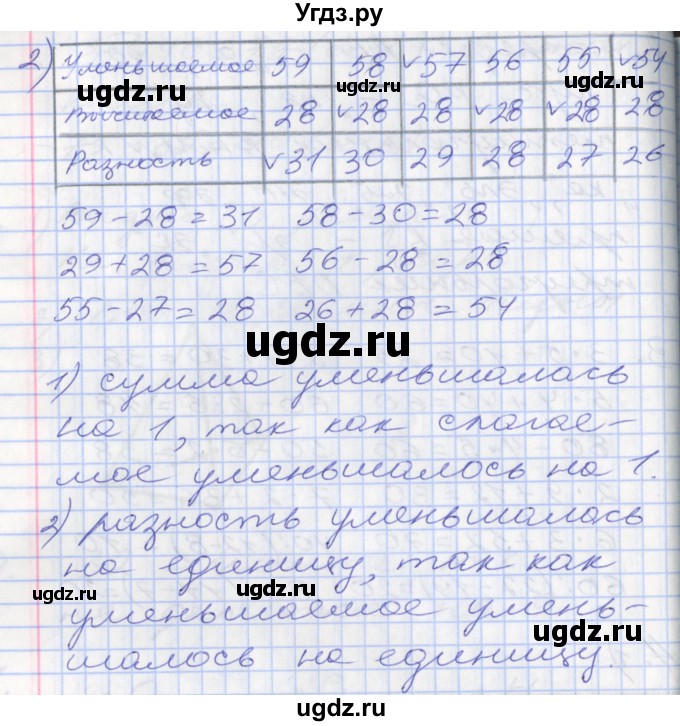 Угдз.ру
2) Уменьшаемое 59 58 ✓57 56 55 ✓54
Вычитаемое 28 ✓28 28 ✓28 ✓28 28
Разность ✓31 30 29 28 27 26
59-28=31 58-30=28
29+28=57 56-28=28
55-27=28 26+28=54
1) сумма уменьшалась
на 1, так как слагае-
мое уменьшалось на 1.
2) разность уменьшалась
на единицу, так как
уменьшаемое умень-
шалось на единицу.
ugdz.ru
ugdz.ru
ugdz.ru
ugdz.ru
ugdz.ru
ugdz.ru
ugdz.ru
ugdz.ru
ugdz.ru
ugdz.ru